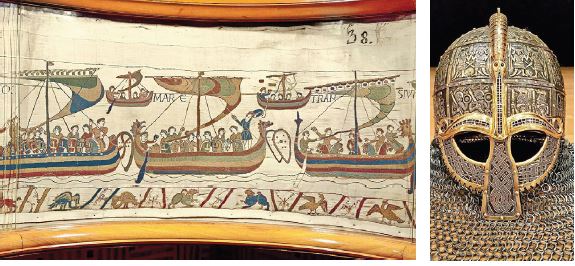 38.
O MARE TRAN SIVI